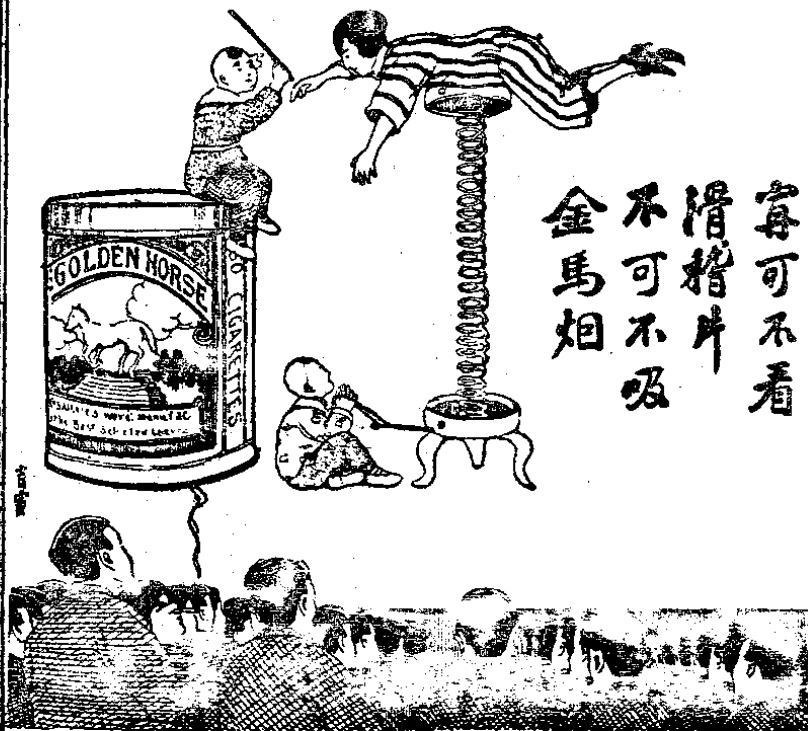 寗可不看
滑稽片
不可不吸
金馬烟
GOLDEN HORSE
50 CIGARETTES